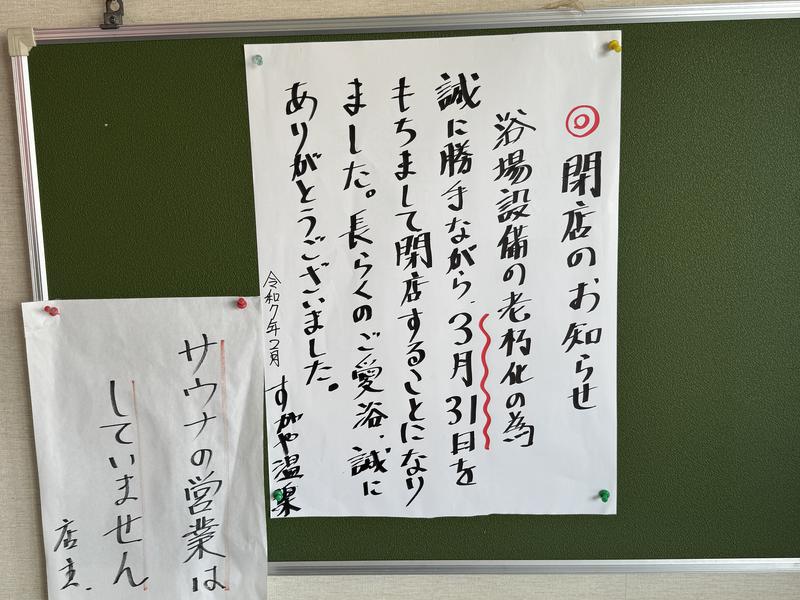 ◎ 閉店のお知らせ
浴場設備の老朽化の為
誠に勝手ながら、3月31日を
もちまして閉店することになり
ました。長らくのご愛浴、誠に
ありがとうございました。
令和7年2月 すがや温泉
サウナの営業は
していません
店主.